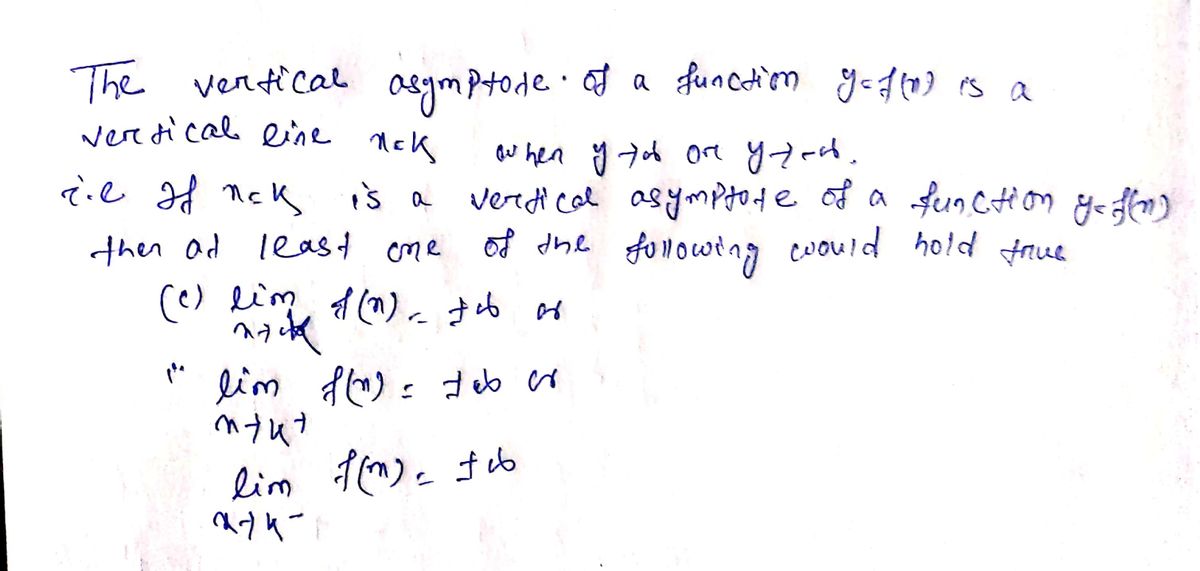 The vertical asymptote of a function y=f(x) is a
vertical line x=k when y→∞ or y→-∞.
i.e If x=k is a vertical asymptote of a function y=f(x)
then at least one of the following would hold true
(c) lim x→k f(x) = ±∞ or
lim x→k+ f(x) = ±∞ or
lim x→k- f(x) = ±∞